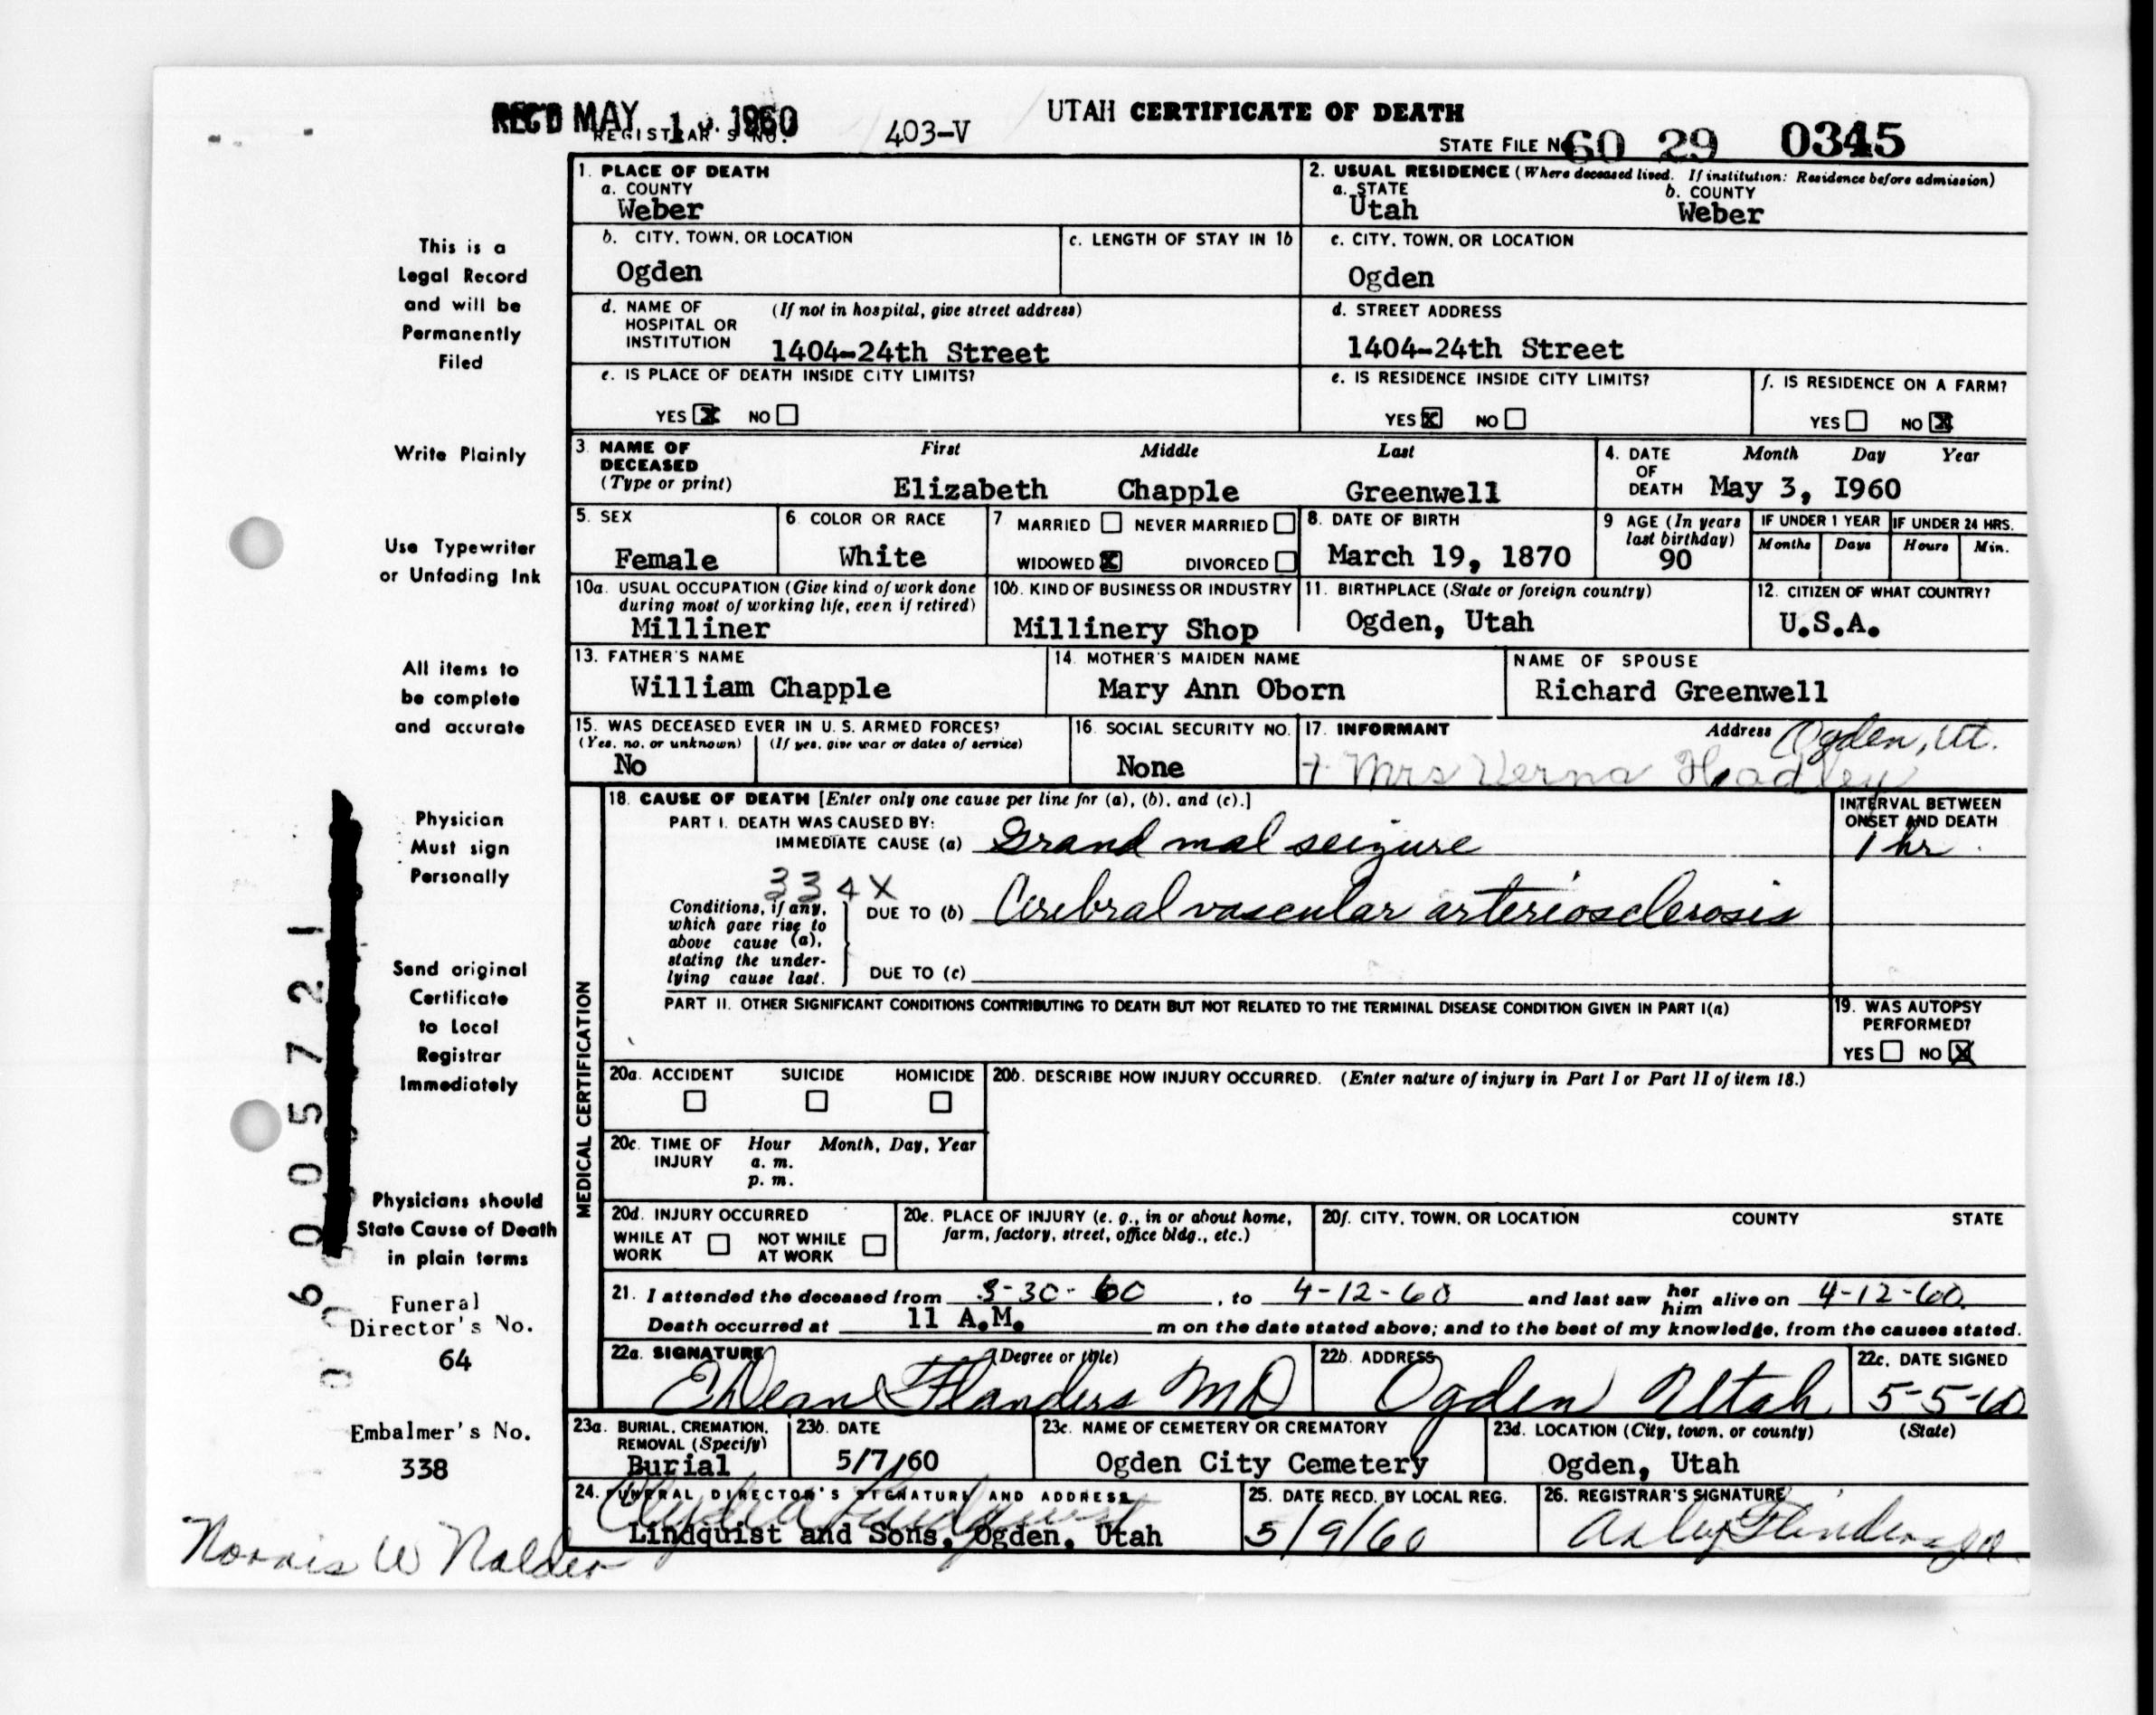 REC'D MAY 1 1960
REGISTRAR'S NO. 403-V
UTAH CERTIFICATE OF DEATH
STATE FILE NO 60 29 0345
1. PLACE OF DEATH
a. COUNTY
Weber
2. USUAL RESIDENCE (Where deceased lived. If institution: Residence before admission)
a. STATE b. COUNTY
Utah Weber
b. CITY, TOWN, OR LOCATION c. LENGTH OF STAY IN 1b
Ogden
c. CITY, TOWN, OR LOCATION
Ogden
d. NAME OF HOSPITAL OR INSTITUTION (If not in hospital, give street address)
1404-24th Street
d. STREET ADDRESS
1404-24th Street
e. IS PLACE OF DEATH INSIDE CITY LIMITS?
YES X NO
e. IS RESIDENCE INSIDE CITY LIMITS?
YES X NO
f. IS RESIDENCE ON A FARM?
YES NO X
3. NAME OF DECEASED (Type or print)
First Middle Last
Elizabeth Chapple Greenwell
4. DATE OF DEATH Month Day Year
May 3, I960
5. SEX
Female
6. COLOR OR RACE
White
7 MARRIED NEVER MARRIED
WIDOWED X DIVORCED
8. DATE OF BIRTH
March 19, 1870
9 AGE (In years last birthday)
90
IF UNDER 1 YEAR IF UNDER 24 HRS.
Months Days Hours Min.
10a. USUAL OCCUPATION (Give kind of work done during most of working life, even if retired)
Milliner
10b. KIND OF BUSINESS OR INDUSTRY
Millinery Shop
11. BIRTHPLACE (State or foreign country)
Ogden, Utah
12. CITIZEN OF WHAT COUNTRY?
U.S.A.
13. FATHER'S NAME
William Chapple
14. MOTHER'S MAIDEN NAME
Mary Ann Oborn
NAME OF SPOUSE
Richard Greenwell
15. WAS DECEASED EVER IN U. S. ARMED FORCES?
(Yes, no, or unknown) (If yes, give war or dates of service)
No
16. SOCIAL SECURITY NO.
None
17. INFORMANT Address Ogden, Ut.
Mrs Verna Hadley
MEDICAL CERTIFICATION
18. CAUSE OF DEATH [Enter only one cause per line for (a), (b), and (c).]
PART I. DEATH WAS CAUSED BY:
IMMEDIATE CAUSE (a) Grand mal seizure
INTERVAL BETWEEN ONSET AND DEATH
1 hr.
334X
Conditions, if any, which gave rise to above cause (a), stating the underlying cause last.
DUE TO (b) Cerebral vascular arteriosclerosis
DUE TO (c)
PART II. OTHER SIGNIFICANT CONDITIONS CONTRIBUTING TO DEATH BUT NOT RELATED TO THE TERMINAL DISEASE CONDITION GIVEN IN PART I(a)
19. WAS AUTOPSY PERFORMED?
YES NO X
20a. ACCIDENT SUICIDE HOMICIDE
20b. DESCRIBE HOW INJURY OCCURRED. (Enter nature of injury in Part I or Part II of item 18.)
20c. TIME OF INJURY Hour Month, Day, Year
a. m.
p. m.
20d. INJURY OCCURRED
WHILE AT WORK NOT WHILE AT WORK
20e. PLACE OF INJURY (e. g., in or about home, farm, factory, street, office bldg., etc.)
20f. CITY, TOWN, OR LOCATION COUNTY STATE
21. I attended the deceased from 3-30-60, to 4-12-60 and last saw her him alive on 4-12-60
Death occurred at 11 A.M. m on the date stated above; and to the best of my knowledge, from the causes stated.
22a. SIGNATURE (Degree or title)
E Dean Flanders MD
22b. ADDRESS
Ogden Utah
22c. DATE SIGNED
5-5-60
23a. BURIAL, CREMATION, REMOVAL (Specify)
Burial
23b. DATE
5/7/60
23c. NAME OF CEMETERY OR CREMATORY
Ogden City Cemetery
23d. LOCATION (City, town, or county) (State)
Ogden, Utah
24. FUNERAL DIRECTOR'S SIGNATURE AND ADDRESS
Lindquist and Sons, Ogden, Utah
25. DATE RECD. BY LOCAL REG.
5/9/60
26. REGISTRAR'S SIGNATURE
This is a
Legal Record
and will be
Permanently
Filed
Write Plainly
Use Typewriter
or Unfading Ink
All items to
be complete
and accurate
Physician
Must sign
Personally
Send original
Certificate
to Local
Registrar
Immediately
Physicians should
State Cause of Death
in plain terms
Funeral
Director's No.
64
Embalmer's No.
338
Norris W Nalder
006005721